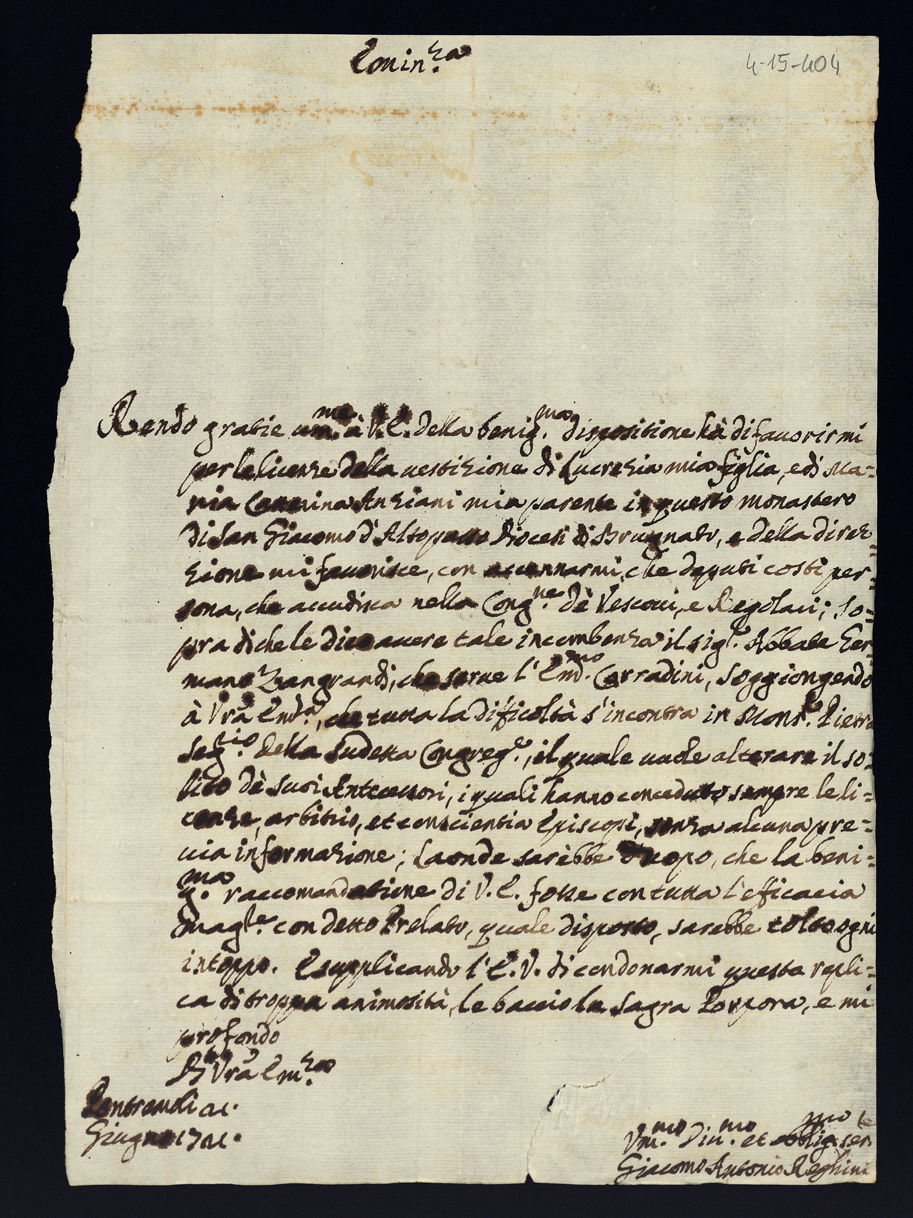 Eminza
4-15-404
Rendo gratie um.me à V.E. della benig.ma dispositione hà di favorirmi
per le licenze della vestizione di Lucrezia mia figlia, e di Ma=
ria Caterina Anziani mia parente in questo monastero
di San Giacomo d'Altopasso Diocesi di Brugnato, e della direz=
zione mi favorisce, con accennarmi, che deputi costì per=
sona, che accudisca nella Cong.ne dè Vescovi, e Regolari; so=
pra di che le dico avere tale incombenza il sig.r Abbate Ger=
mano Zangrandi, che serve l'Em.mo Corradini, soggiongendo
à Vra Emza, che tutta la difficoltà s'incontra in Mons.r Pietra
Seg.rio della sudetta Congreg.e, il quale vuole alterare il so=
lito dè suoi Antecessori, i quali hanno conceduto sempre le li=
cenze, arbitrio, et conscientia Episcopi, senza alcuna pre=
via informazione; Laonde sarèbbe d'uopo, che la beni=
g.ma raccomandatione di V.E. fosse con tutta l'efficacia
con detto Prelato, quale disposto, sarebbe tolto ogni
intoppo. E supplicando l'E.V. di condonarmi questa repli=
ca di troppa animosità, le baccio la Sagra Porpora, e mi
profondo
Di Vra Emza
Pontremoli 21.
Giugno 1721.
Um.mo Div.mo et obblig.mo ser.
Giacomo Antonio Reghini